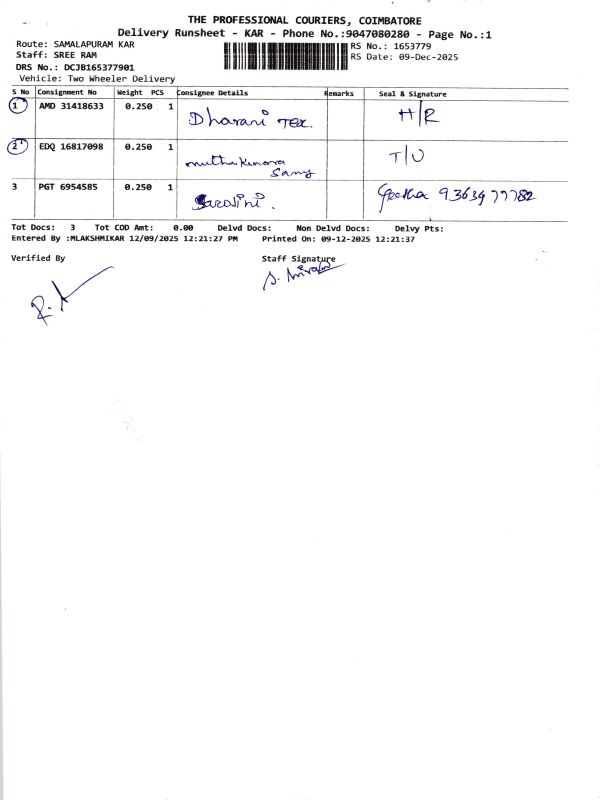 THE PROFESSIONAL COURIERS, COIMBATORE
Delivery Runsheet - KAR - Phone No.:9047080280 - Page No.:1
Route: SAMALAPURAM KAR
RS No.: 1653779
Staff: SREE RAM
RS Date: 09-Dec-2025
DRS No.: DCJB165377901
Vehicle: Two Wheeler Delivery
S No Consignment No Weight PCS Consignee Details Remarks Seal & Signature
1 AMD 31418633 0.250 1 Dharani Tex. H/R
2 EDQ 16817098 0.250 1 muthukumara Samy T/U
3 PGT 6954585 0.250 1 Sarojini. Geetha 9363977782
Tot Docs: 3 Tot COD Amt: 0.00 Delvd Docs: Non Delvd Docs: Delvy Pts:
Entered By :MLAKSHMIKAR 12/09/2025 12:21:27 PM Printed On: 09-12-2025 12:21:37
Verified By Staff Signature